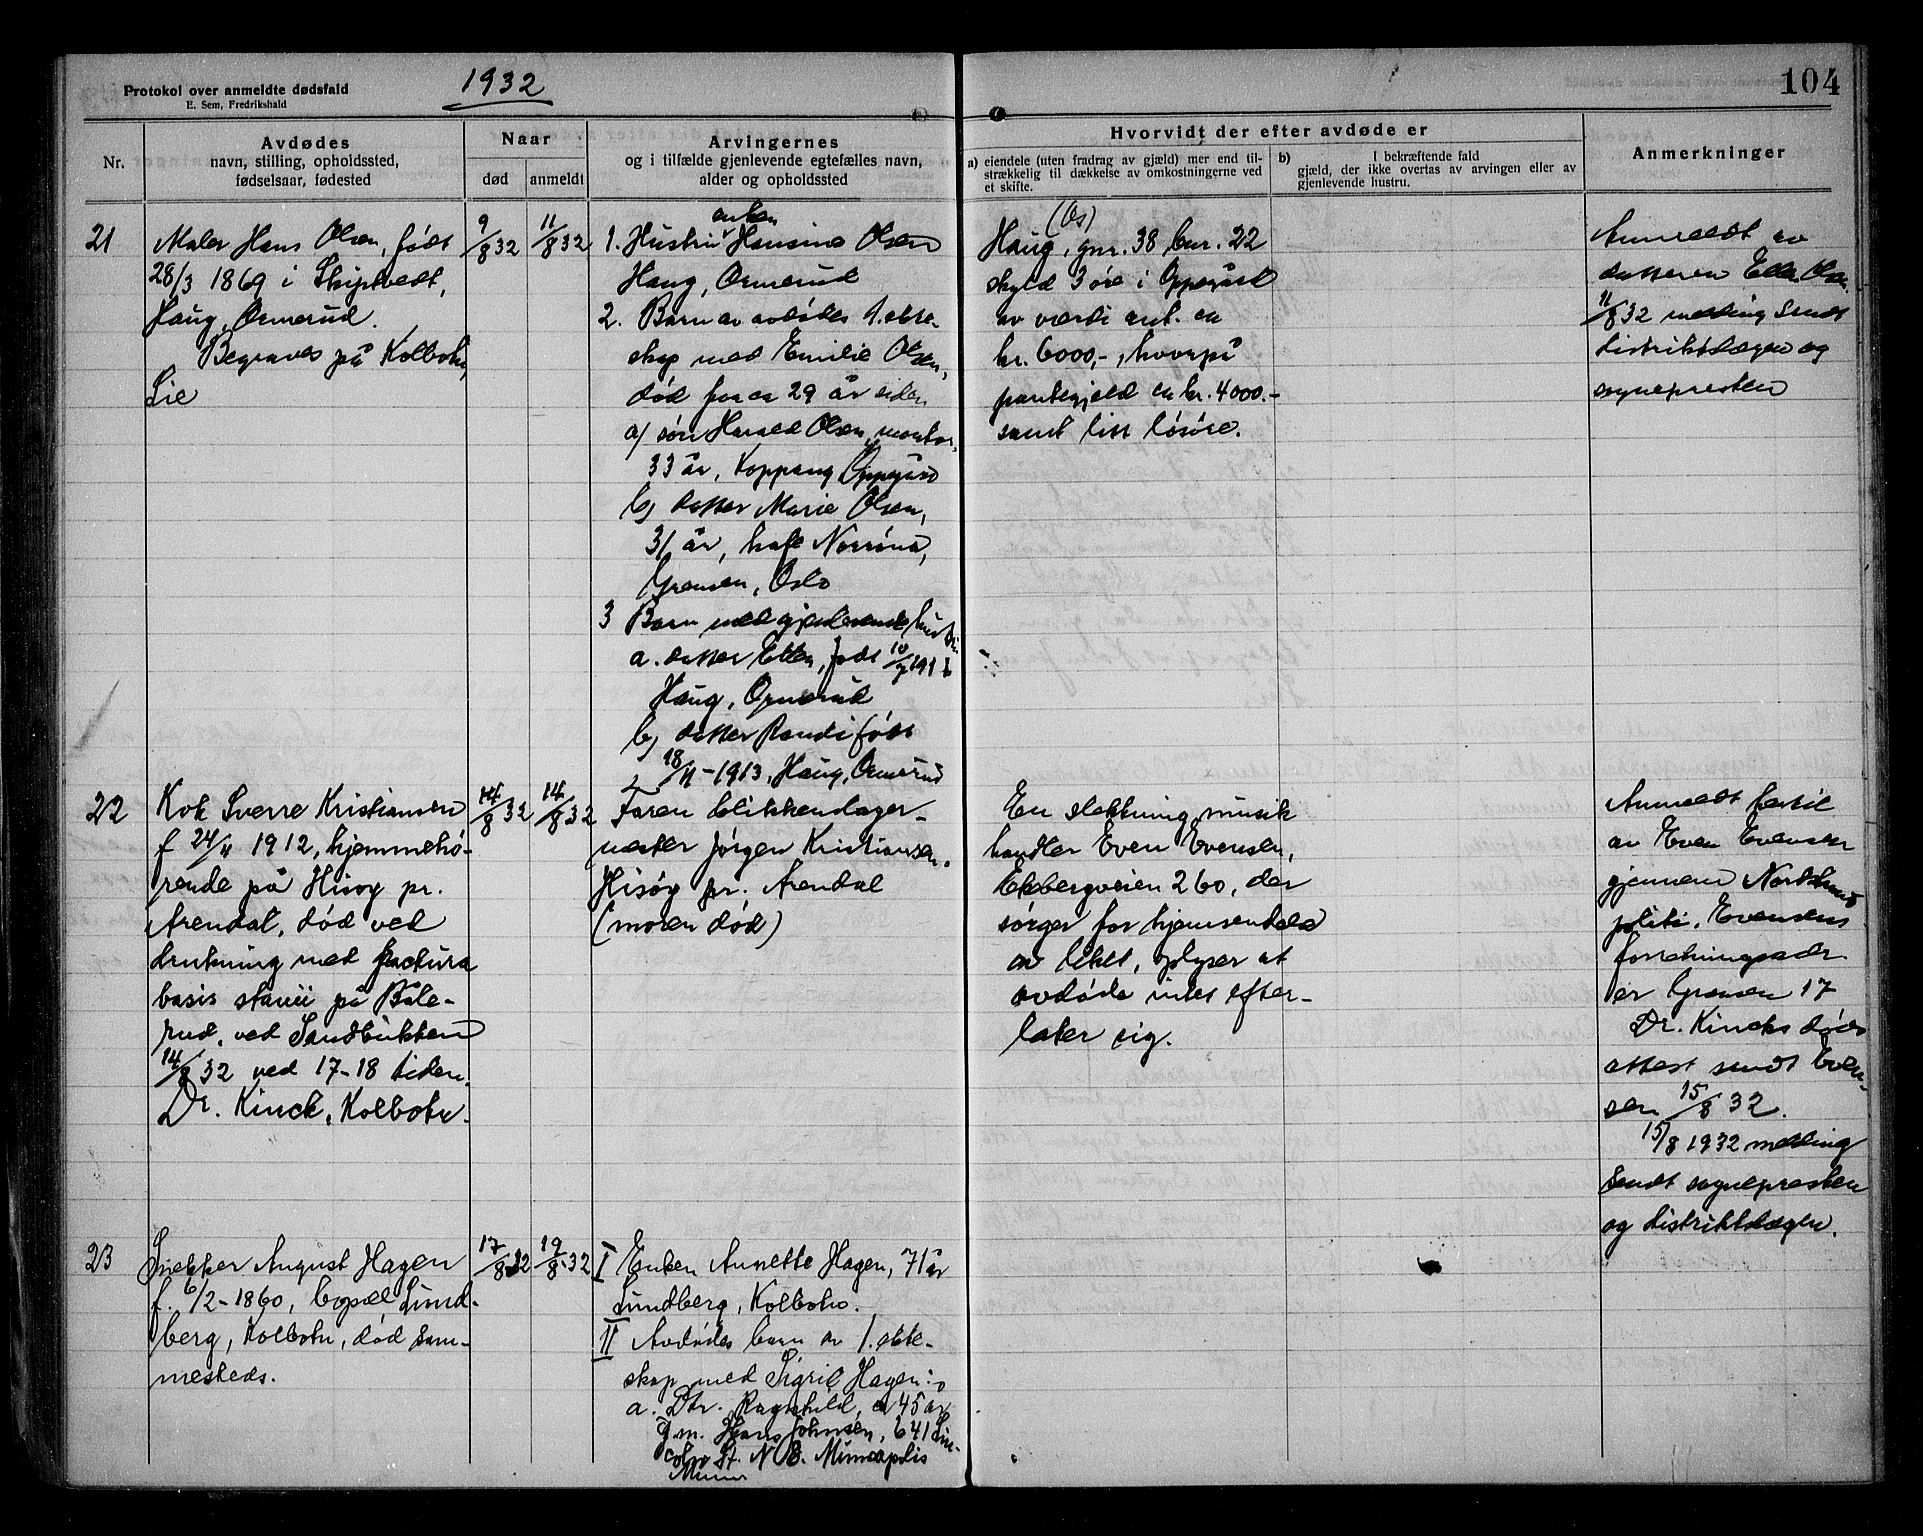 Protokol over anmeldte dødsfald
E. Sem, Fredrikshald
1932
104
Nr.
Avdødes
navn, stilling, opholdssted,
fødselsaar, fødested
Naar
død
anmeldt
Arvingernes
og i tilfælde gjenlevende egtefælles navn,
alder og opholdssted
Hvorvidt der efter avdøde er
a) eiendele (uten fradrag av gjæld) mer end til-
strækkelig til dækkelse av omkostningerne ved
et skifte.
b) I bekræftende fald
gjæld, der ikke overtas av arvingen eller av
gjenlevende hustru.
Anmerkninger
21
Maler Hans Olsen, født
28/3 1869 i Skiptvedt,
Haug, Ormerud.
Begraves på Kolbotn,
Lie
9/8 32
11/8 32
enken
1. Hustru Hansine Olsen
Haug, Ormerud
2. Barn av avdødes 1. ekte-
skap med Emilie Olsen,
død for ca 29 år siden
a/ søn Harald Olsen, montør,
33 år, Koppang Oppegård
b) datter Marie Olsen,
31 år, kafe Norrøna,
Grensen, Oslo
3 Barn med gjenlevende hustru
a. datter Ellen, født 10/7 191
Haug, Ormerud
b) datter Randi født
18/11-1913, Haug, Ormerud
(Øs)
Haug, gnr. 38 bnr. 22
skyld 3 øre i Oppegård
av værdi ant. ca
kr. 6000,-, hvorpå
pantegjeld ca kr. 4000.-
samt litt løsøre.
Anmeldt av
datteren Ellen Olsen.
11/8 32 melding sendt
distriktslægen og
sognepresten
22
Kok Sverre Kristiansen
f 24/11 1912, hjemmehø-
rende på Hisøy pr.
Arendal, død ved
drukning med fractura
basis kranii på Båle-
rud, ved Sandbukken
14/8 32 ved 17-18 tiden.
Dr. Kinck, Kolbotn.
14/8 32
14/8 32
Faren blikkenslager-
mester Jørgen Kristiansen,
Hisøy pr. Arendal
(moren død)
En slektning, musik
handler Even Evensen,
Ekebergveien 260, der
sørger for hjemsendelse
av liket, oplyser at
avdøde intet efter-
later sig.
Anmeldt hertil
av Even Evensen
gjennem Nordstrand
politi. Evensens
forretningsadr.
er Grensen 17
Dr. Kincks døds
attest sendt Even-
sen 15/8 32.
15/8 1932 melding
sendt sognepresten
og distriktslægen.
23
Snekker August Hagen
f. 6/2-1860, bopæl Lund-
berg, Kolbotn, død sam-
mesteds.
17/8 32
19/8-32
I Enken Annette Hagen, 71 år
Lundberg, Kolbotn.
II Avdødes barn av 1. ekte-
skap med Sigrid Hagen:
a. Dtr. Ragnhild, ca 45 år
g.m. Hans Johnsen, 641 Lin-
coln St. N 8. Minneapolis
Minn